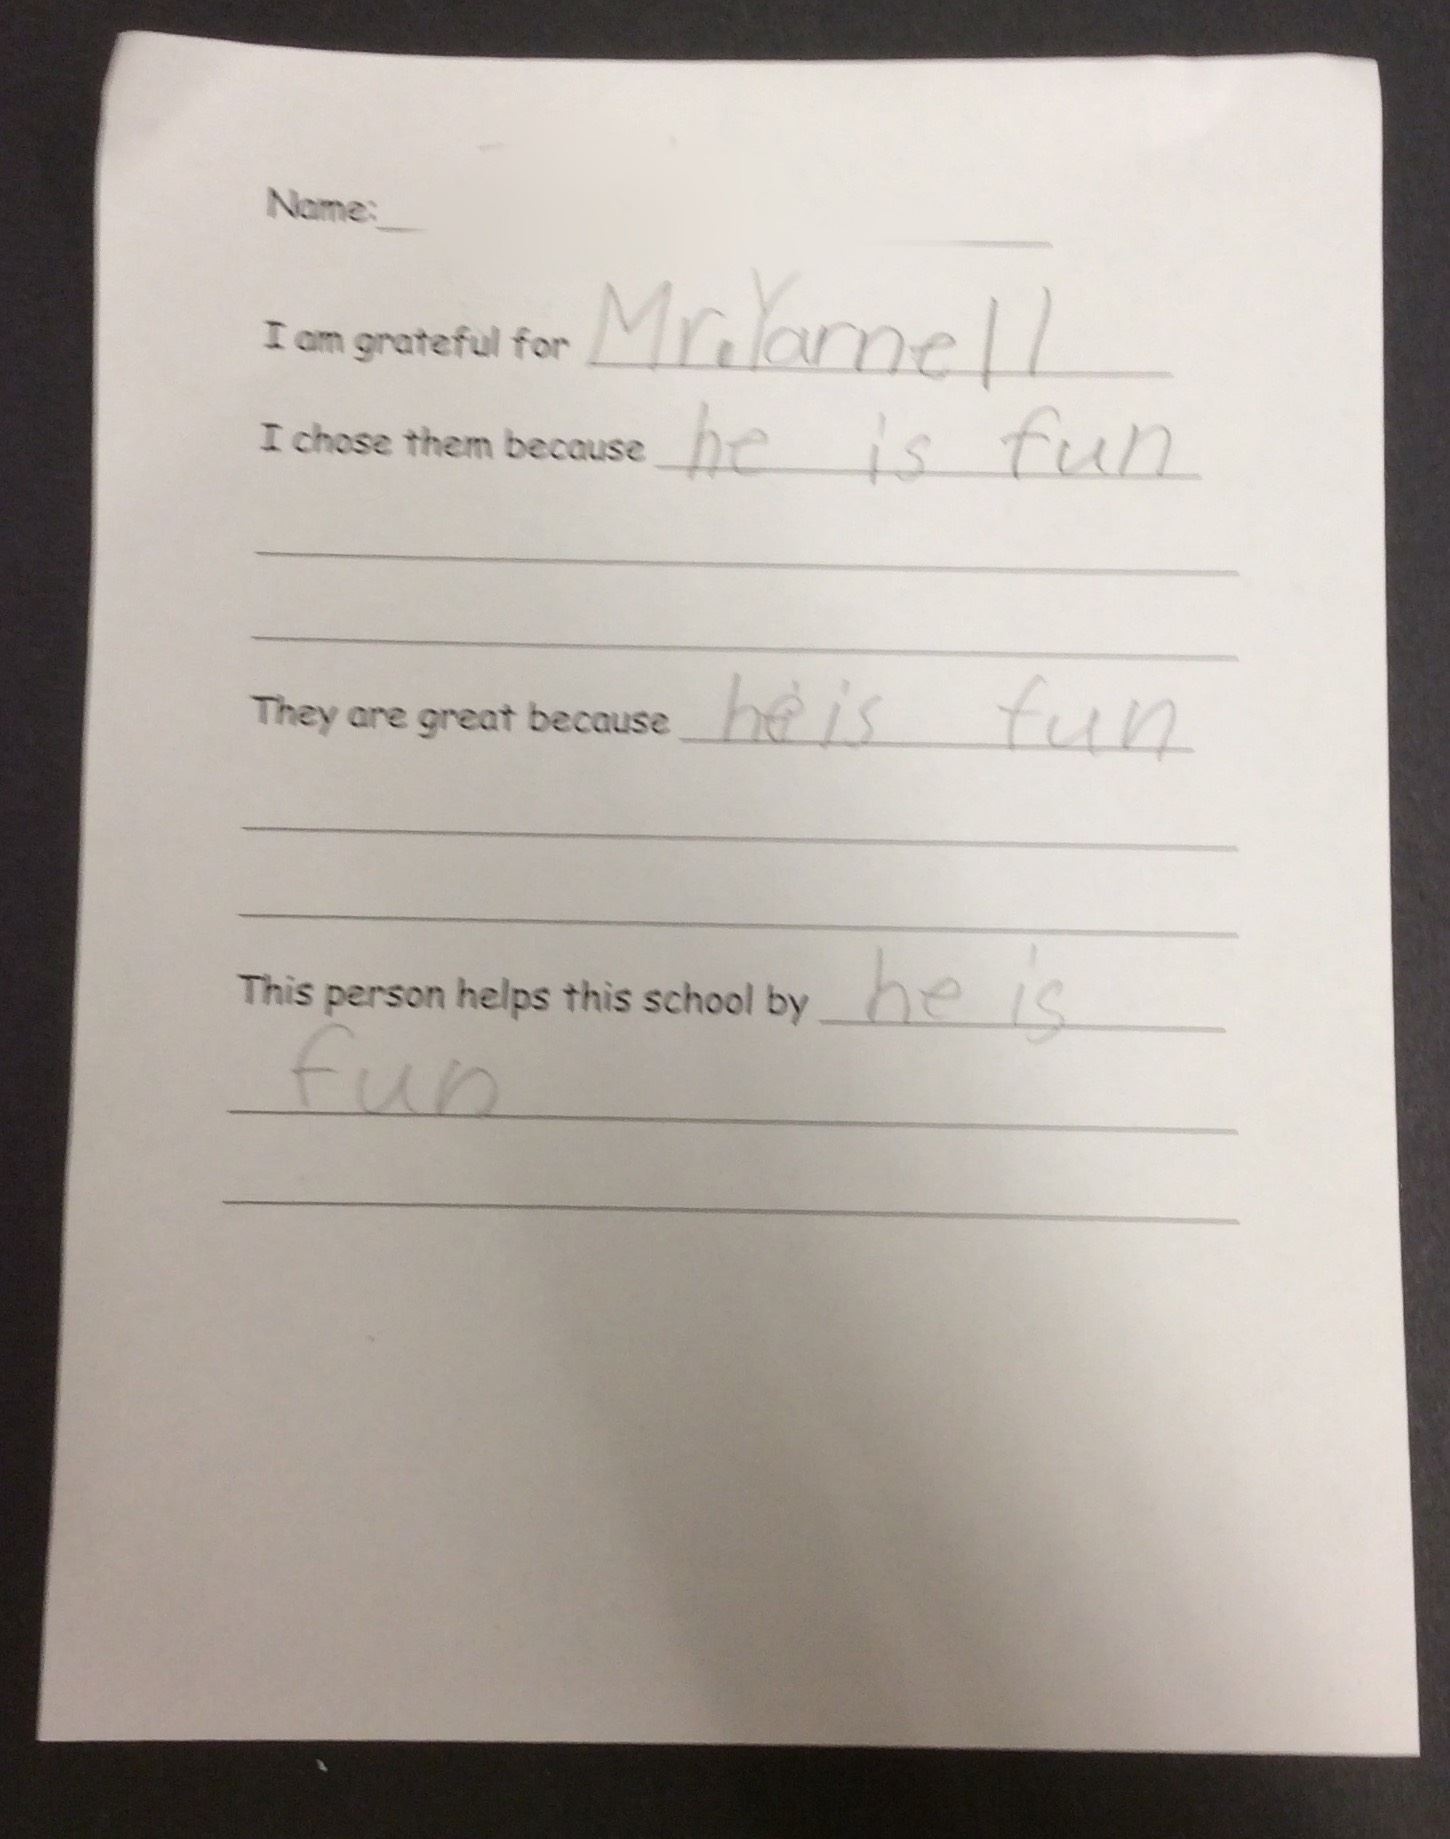 Name:
I am grateful for Mr. Yarnell
I chose them because he is fun
They are great because he is fun
This person helps this school by he is
fun